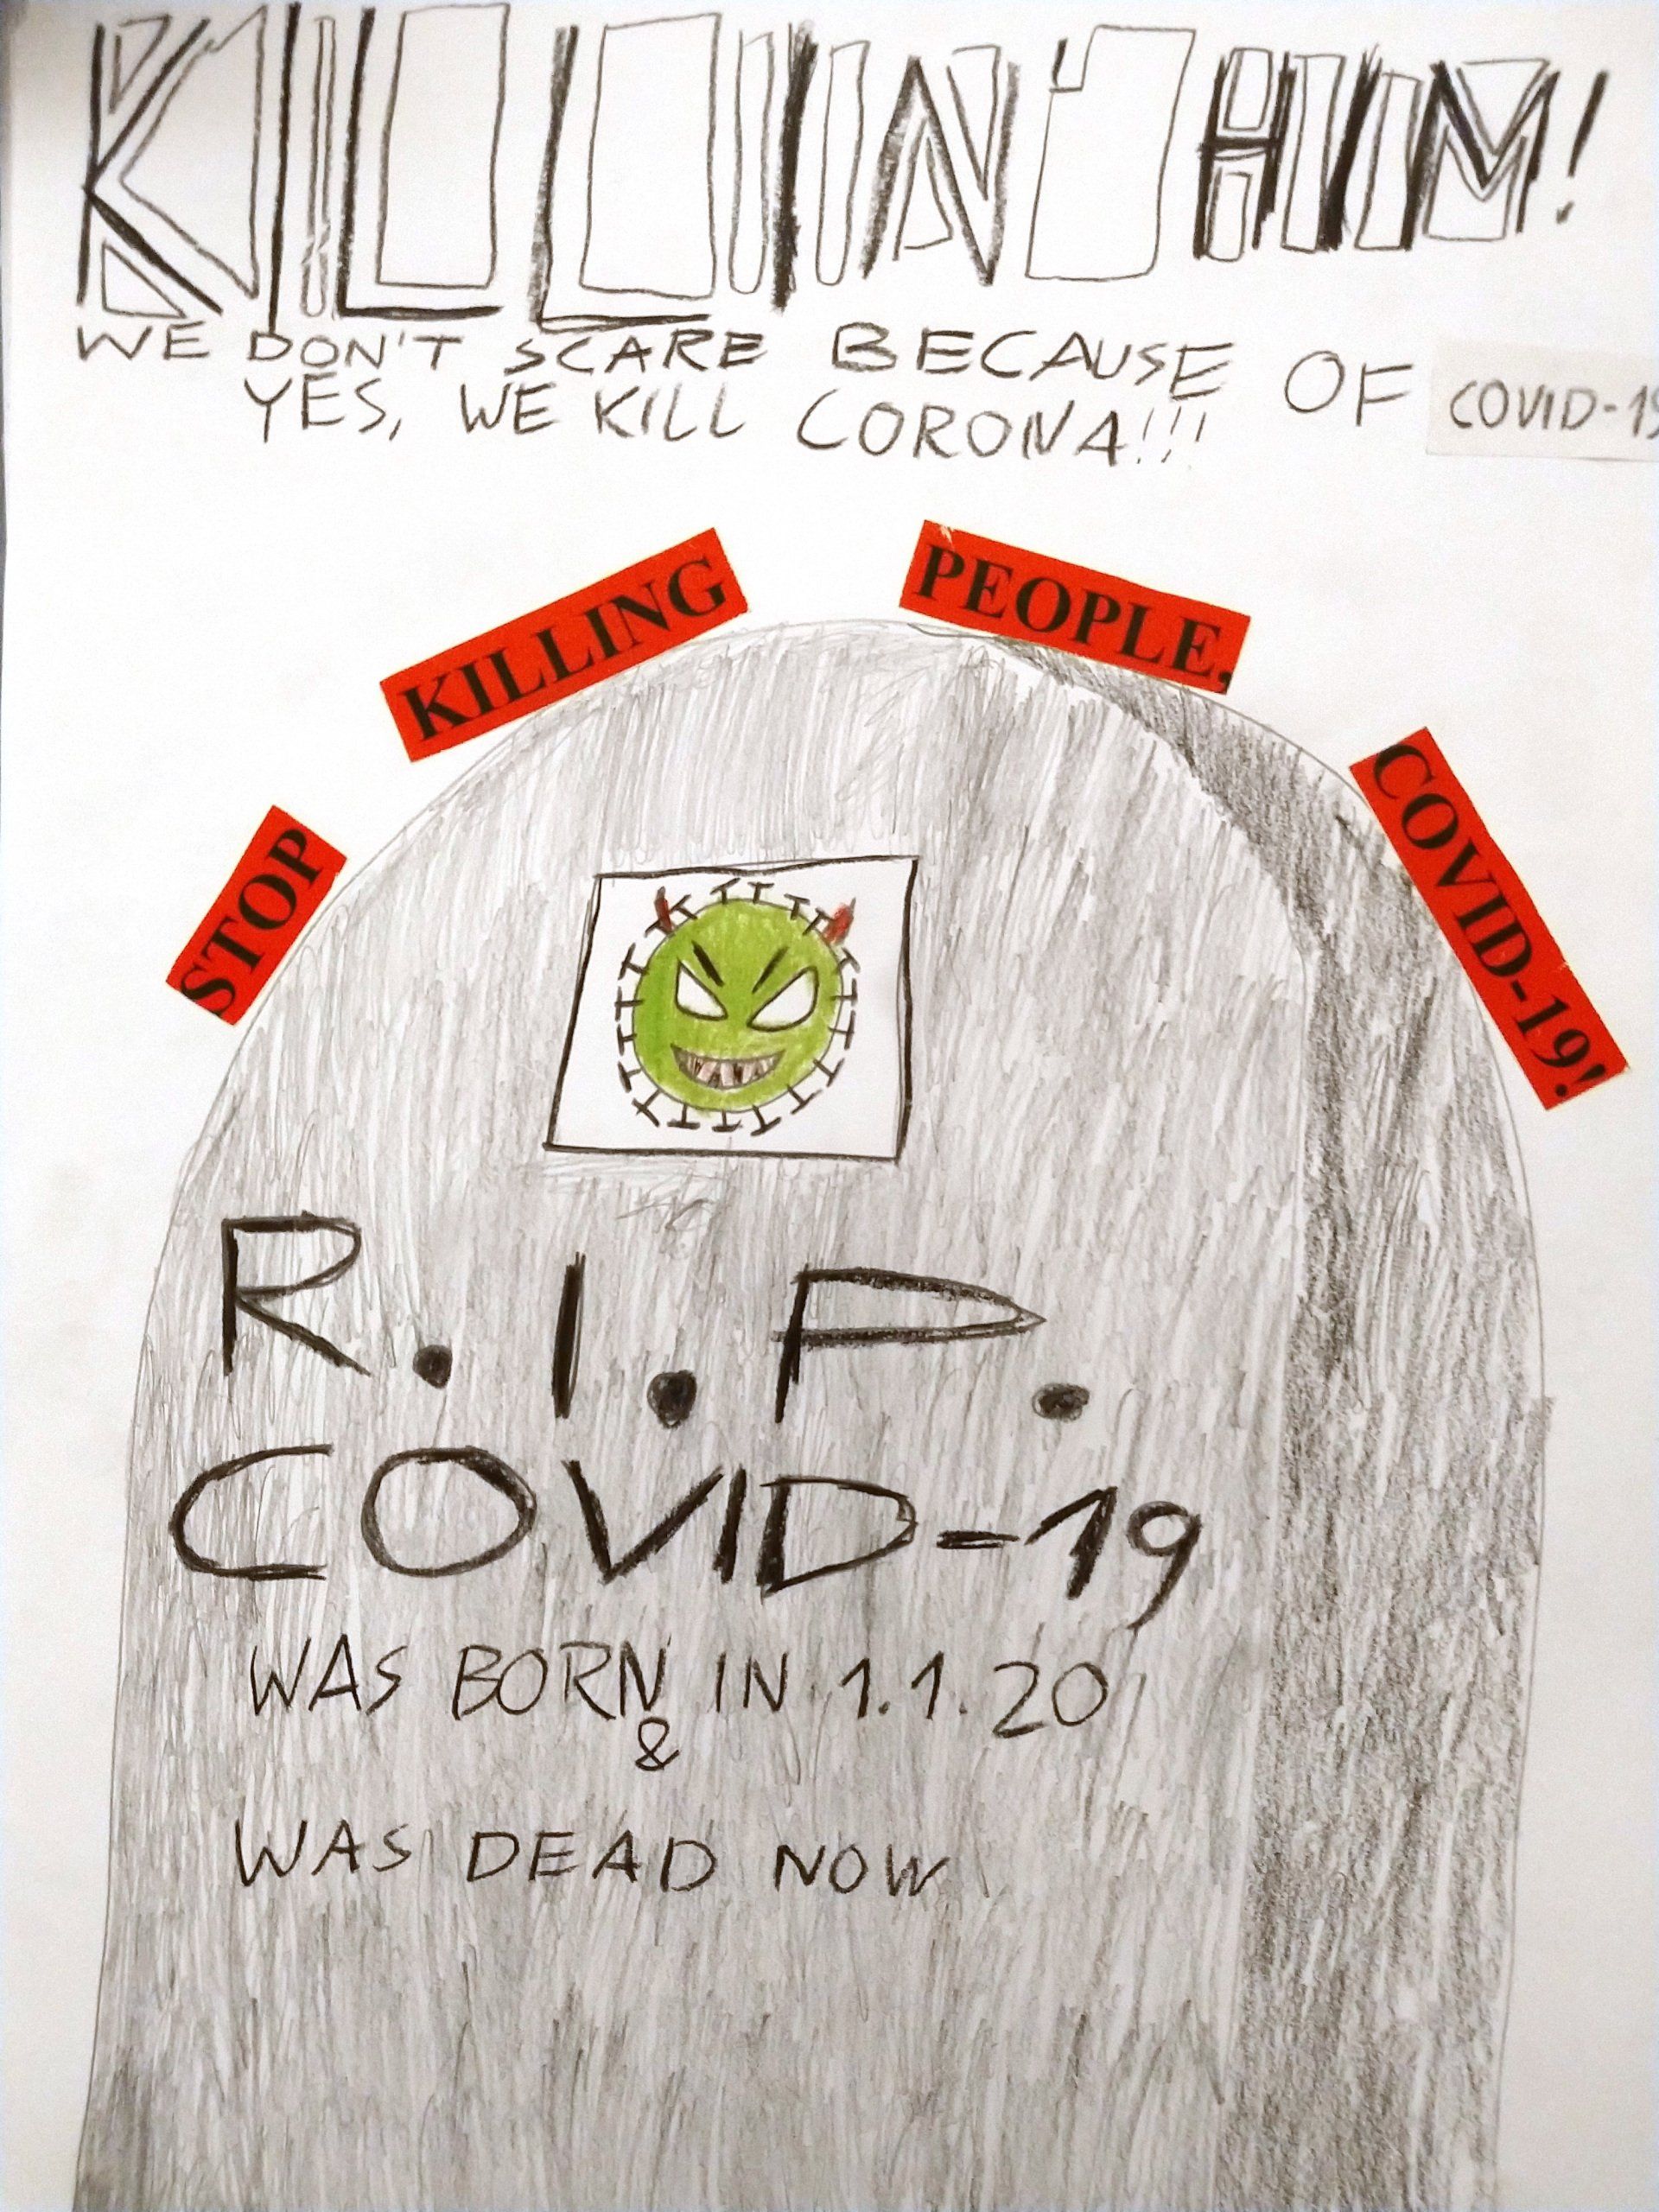 KILLIN' HIM!
WE DON'T SCARE BECAUSE OF COVID-19
YES, WE KILL CORONA!!!
STOP KILLING PEOPLE, COVID-19!
R.I.P.
COVID-19
WAS BORN IN 1.1.20
&
WAS DEAD NOW